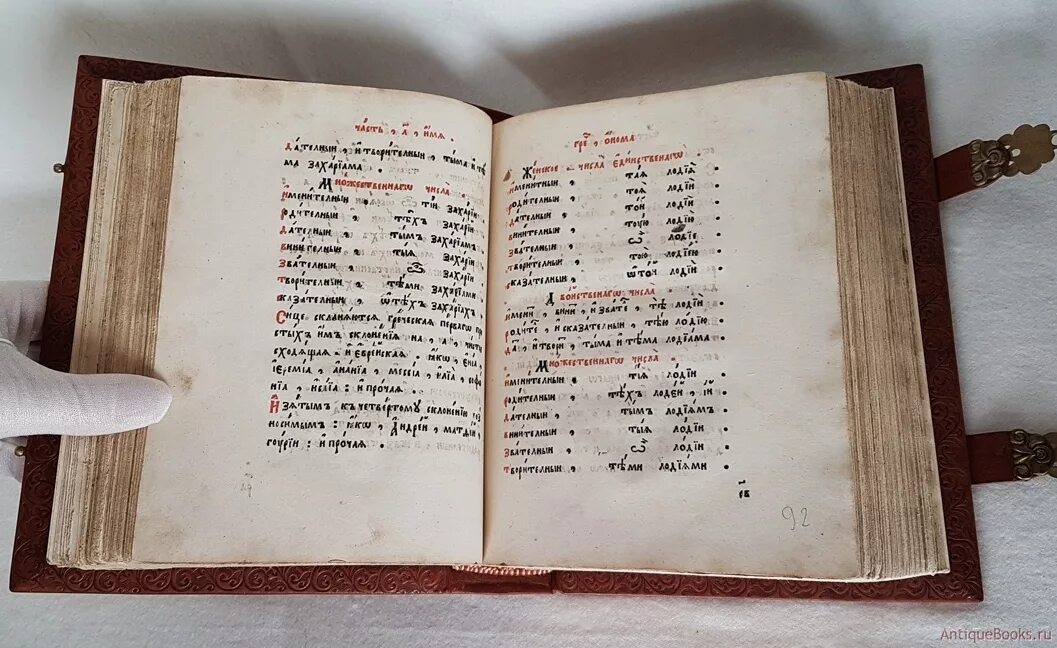 часть , а҃ , и҆́мѧ .
да́телныи , и҆ твори́телныи , тыма и҆ тѣ́
ма заха́рїама .
Мно́жественнагѡ числа̀
и҆мени́телныи , ті́и заха́рїи
роди́телныи , тѣ́хъ заха́рїй
да́телныи , ты́мъ заха́рїамъ
вини́телныи , ты́ѧ заха́рїи
зва́телныи , ѽ заха́рїи
твори́телныи , тѣ́ми заха́рїами
сказа́телныи , ѡ҆ тѣ́хъ заха́рїахъ
Си́це склонѧ́ютсѧ гре́ческаѧ пе́рвагѡ про
сты́хъ и҆́мъ склоне́нїѧ на , а , чи́сти
сходѧ́щаѧ , и҆ є҆вре́йскаѧ . ꙗ҆́кѡ , є҆ні́а
і҆еремі́а , а҆на́нїа , месси́а , и҆лі́а , софо
ні́а , : и҆ про́чаѧ .
И҆зѧ́тымъ къ четве́ртому склоне́нїю воз
носи́мымъ : ꙗ҆́кѡ , а҆ндре́й , матѳі́й
гоурі́и : и҆ про́чаѧ .
гре́ , о҆́нома
Же́нское , числа̀ є҆ди́нственагѡ
и҆мени́тныи , та́ѧ лоді́ѧ .
роди́телныи , тоѧ̀ лоді́и .
да́телныи , то́й лоді́и .
вини́телныи , тꙋ́ю лоді́ю .
зва́телныи , ѽ лоді́е .
твори́телныи , то́ю лоді́ею .
сказа́телныи , ѡ҆ то́й лоді́и .
Дво́йственагѡ числа̀
и҆мени́ , вини́ , и҆ зва́те , тѣ́ лоді́и .
роди́те , и҆ сказа́телныи , тѣ́ю лоді́ю .
да́ , и҆ твори́ , ты́ма и҆ тѣ́ма лоді́ама .
Мно́жественнагѡ числа̀
и҆мени́телныи , ті́ѧ лоді́и .
роди́телныи , тѣ́хъ лоді́ей , і҆́й .
да́телныи , ты́мъ лоді́ѧмъ .
вини́телныи , ты́ѧ лоді́и .
зва́телныи , ѽ лоді́и .
твори́телныи , тѣ́ми лоді́ѧми .
92
AntiqueBooks.ru